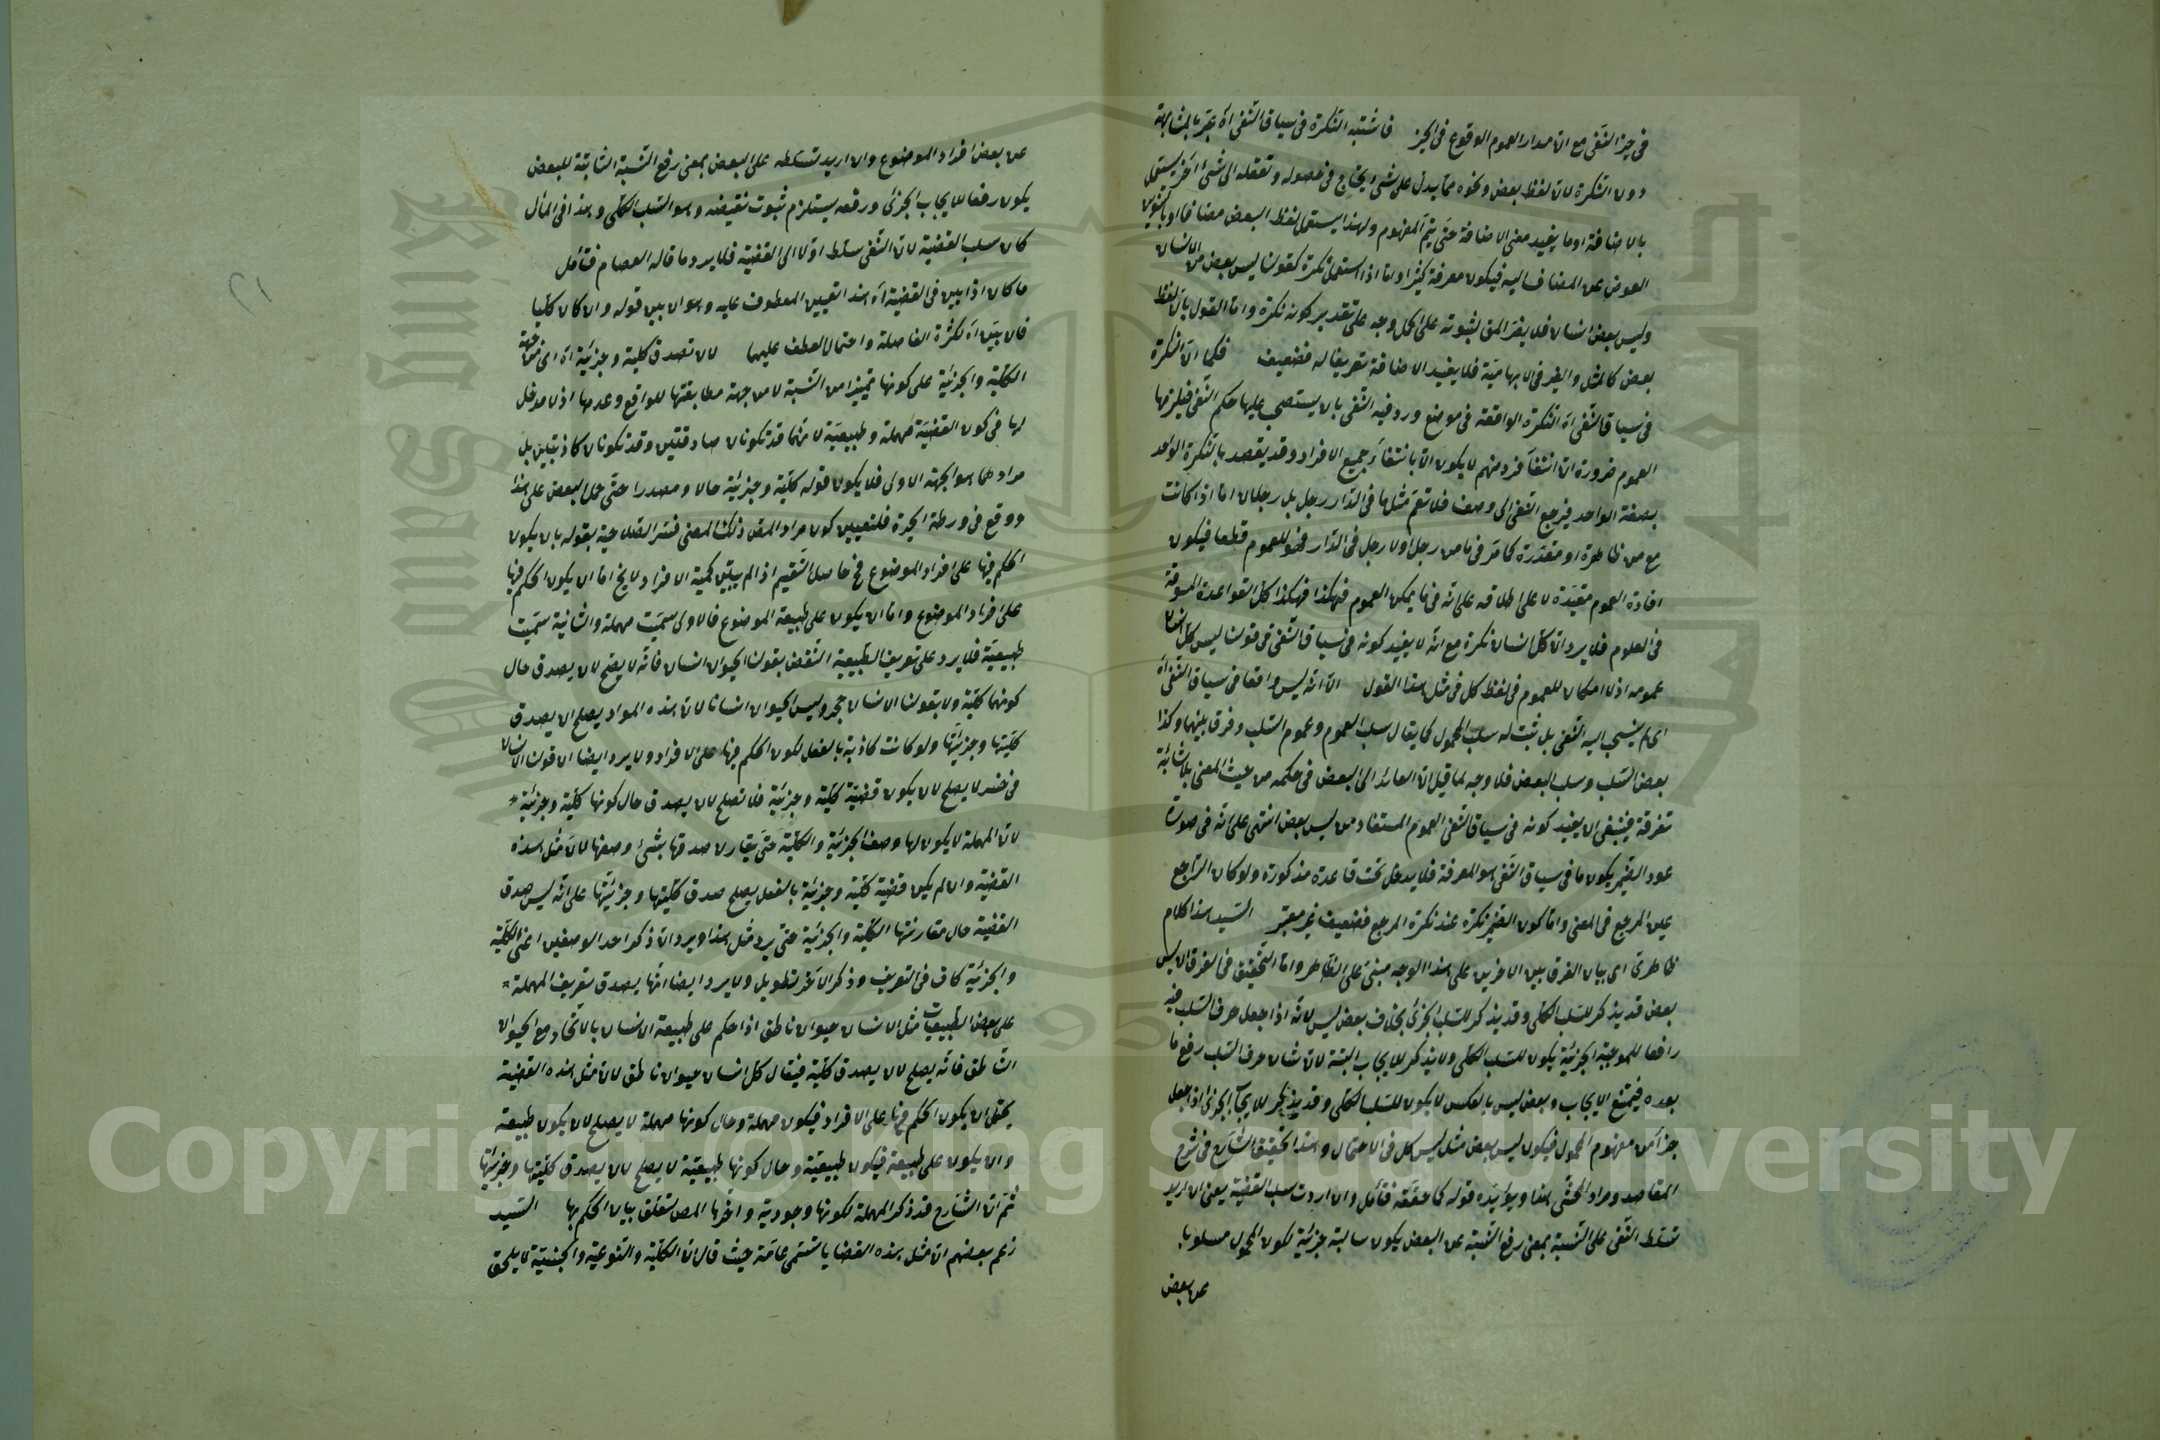 في حيز النفي مع ان مدار العموم الوقوع في الحيز فاشتبه النكرة في سياق النفي اه عبر بالمشابهة
دون النكرة لان لفظ بعض ونحوه مما يدل على شيء يحتاج في حصوله وتعقله الى شيء آخر يستعمل
بالاضافة او ما يفيد معنى الاضافة حتى يتم المفهوم ولهذا يستعمل لفظ البعض مضافا او بالتنوين
العوض عن المضاف اليه فيكون معرفة كثيرا واما اذا استعمل نكرة كقولنا ليس بعض من الانسان
وليس بعض انسان فلا يفتر المق لثبوته على كل وجه على تقدير كونه نكرة واما القول بان لفظ
بعض كالمثل والغير في الابهامية فلا يفيد الاضافة تعريفا له فضعيف فكما ان النكرة
في سياق النفي اه النكرة الواقعة في موضع ورد فيه النفي بان يستصحب عليها حكم النفي فيلزمها
العموم ضرورة ان انتفاء فرد مبهم لا يكون الا بانتفاء جميع الافراد وقد يقصد بالنكرة الواحد
بصفة الواحد فيرجع النفي الى وصف فلا تعم مثل ما في الدار رجل بل رجلان اما اذا كانت
مع من ظاهرة او مقدرة كما مر في ما من رجل او لا رجل في الدار فهو للعموم قطعا فيكون
افادة العموم مقيدة لا على اطلاقه على انه في ما يمكن العموم فهكذا فهكذا كل القواعد المسوقة
في العلوم فلا يرد ان كل انسان نكرة مع انه لا يفيد كونه في سياق النفي في قولنا ليس كل انسان
عمومه اذ لا امكان للعموم في لفظ كل في مثل هذا القول الا انه ليس واقعا في سياق النفي اه
اى لم ينسحب اليه النفي بل ثبت له سلب المحمول كما يقال سلب العموم وعموم السلب وفرق بينهما وكذا
بعض السلب وسلب البعض فلا وجه لما قيل ان العائد الى البعض في حكمه من حيث المعنى بلا شائبة
تفرقة فينبغي ان يفيد كونه في سياق النفي العموم المستفاد من ليس بعض انتهى على انه في صورة
عود الضمير يكون ما في سياق النفي هو المعرفة فلا يدخل تحت قاعدة مذكورة ولو كان الراجع
عين المرجع في المعنى واما كون الضمير نكرة عند نكرة المرجع فضعيف غير معتبر السيد هذا كلام
ظاهرى اى بيان الفرق بين الاخيرين على هذا الوجه مبنى على الظاهر واما التحقيق في الفرق ان ليس
بعض قد يذكر للسلب الكلى وقد يذكر للسلب الجزئى بخلاف بعض ليس لانه اذا جعل حرف السلب فيه
رافعا للموجبة الجزئية يكون للسلب الكلى ولا يذكر للايجاب البتة لان شان حرف السلب رفع ما
بعده فيمتنع الايجاب وبعض ليس بالعكس لا يكون للسلب الكلى وقد يذكر للايجاب الجزئى اذا جعل
جزأ من مفهوم المحمول فيكون ليس بعض مثل ليس كل في الاحتمال وهذا تحقيق الشارح في شرح
المقاصد ومراد المحشى هنا ويؤيده قوله كما حققه فتأمل وان اردت سلب القضية يعنى ان اريد
تسلط النفي على النسبة بمعنى رفع النسبة عن البعض يكون سالبة جزئية لكون المحمول مسلوبا
عن بعض
عن بعض افراد الموضوع وان اريد تسلطه على البعض بمعنى رفع النسبة الثابتة للبعض
يكون رفعا للايجاب الجزئى ورفعه يستلزم ثبوت نقيضه وهو السلب الكلى وهذا في المأل
كان سلب القضية لان النفي سلط اولا الى القضية فلا يرد ما قاله العصام فتأمل
ما كان اذا بين في القضية اه هذا تعيين المعطوف عليه وهو ان بين قوله وان كان كليا
فان بين اه لكثرة الفاصلة واحتمال العطف عليهما لان تصدق كلية وجزئية اه اى من جهة
الكلية والجزئية على كونها تمييزا من النسبة لا من جهة مطابقتها للواقع وعدمها اذ لا مدخل
لها في كون القضية مهملة وطبيعية لانهما قد تكونان صادقتين وقد تكونان كاذبتين بل
مرادهما هو الجهة الاولى فلا يكون قوله كلية وجزئية حالا ومصدرا حتى حمل البعض على هذا
ووقع في ورطة الحيرة فلتعيين كون مراد المص ذلك المعنى فسر الصلاحية بقوله بان يكون
الحكم فيها على افراد الموضوع فح حاصل التقسيم اذا لم يبين كمية الافراد لا يخ اما ان يكون الحكم فيها
على افراد الموضوع واما ان يكون على طبيعة الموضوع فالاولى سميت مهملة والثانية سميت
طبيعية فلا يرد على تعريف الطبيعية النقض بقولنا الحيوان انسان فانه لا يصلح لان يصدق حال
كونها كلية ولا بقولنا الانسان حجر وليس الحيوان انسانا لان هذه المواد يصلح ان يصدق
كليتها وجزئيتها ولو كانت كاذبة بالفعل لكون الحكم فيها على الافراد ولا يرد ايضا ان قولنا الانسان
في خسر لا يصلح لان يكون قضية كلية وجزئية فلا تصلح لان يصدق حال كونها كلية وجزئية
لان المهملة لا يكون لها وصف الجزئية والكلية حتى يقارن صدقها بشئ وصفها لان مثل هذه
القضية وان لم يكن قضية كلية وجزئية بالفعل يصلح صدق كليتها وجزئيتها على انه ليس صدق
القضية حال مقارنتها الكلية والجزئية حتى يرد مثل هذا ويرد ان ذكر احد الوصفين اعنى الكلية
والجزئية كاف في التعريف وذكر الاخر تطويل ولا يرد ايضا انها يصدق تعريف المهملة
على بعض الطبيعيات مثل الانسان حيوان ناطق اذا حكم على طبيعة الانسان بالاتحاد مع الحيوان
الناطق فانه يصلح لان يصدق كلية فيقال كل انسان حيوان ناطق لان مثل هذه القضية
يحتمل ان يكون الحكم فيها على الافراد فيكون مهملة وحال كونها مهملة لا يصلح لان يكون طبيعية
وان يكون على طبيعة فيكون طبيعية وحال كونها طبيعية لا يصلح لان يصدق كليتها وجزئيتها
ثم ان الشارح قد ذكر المهملة لكونها وجودية واخرها المص لتعلق بيان الحكم بها السيد
زعم بعضهم ان مثل هذه القضايا تسمى عامة حيث قال ان الكلية والنوعية والجنسية لا يلحق
Copyright © King Saud University